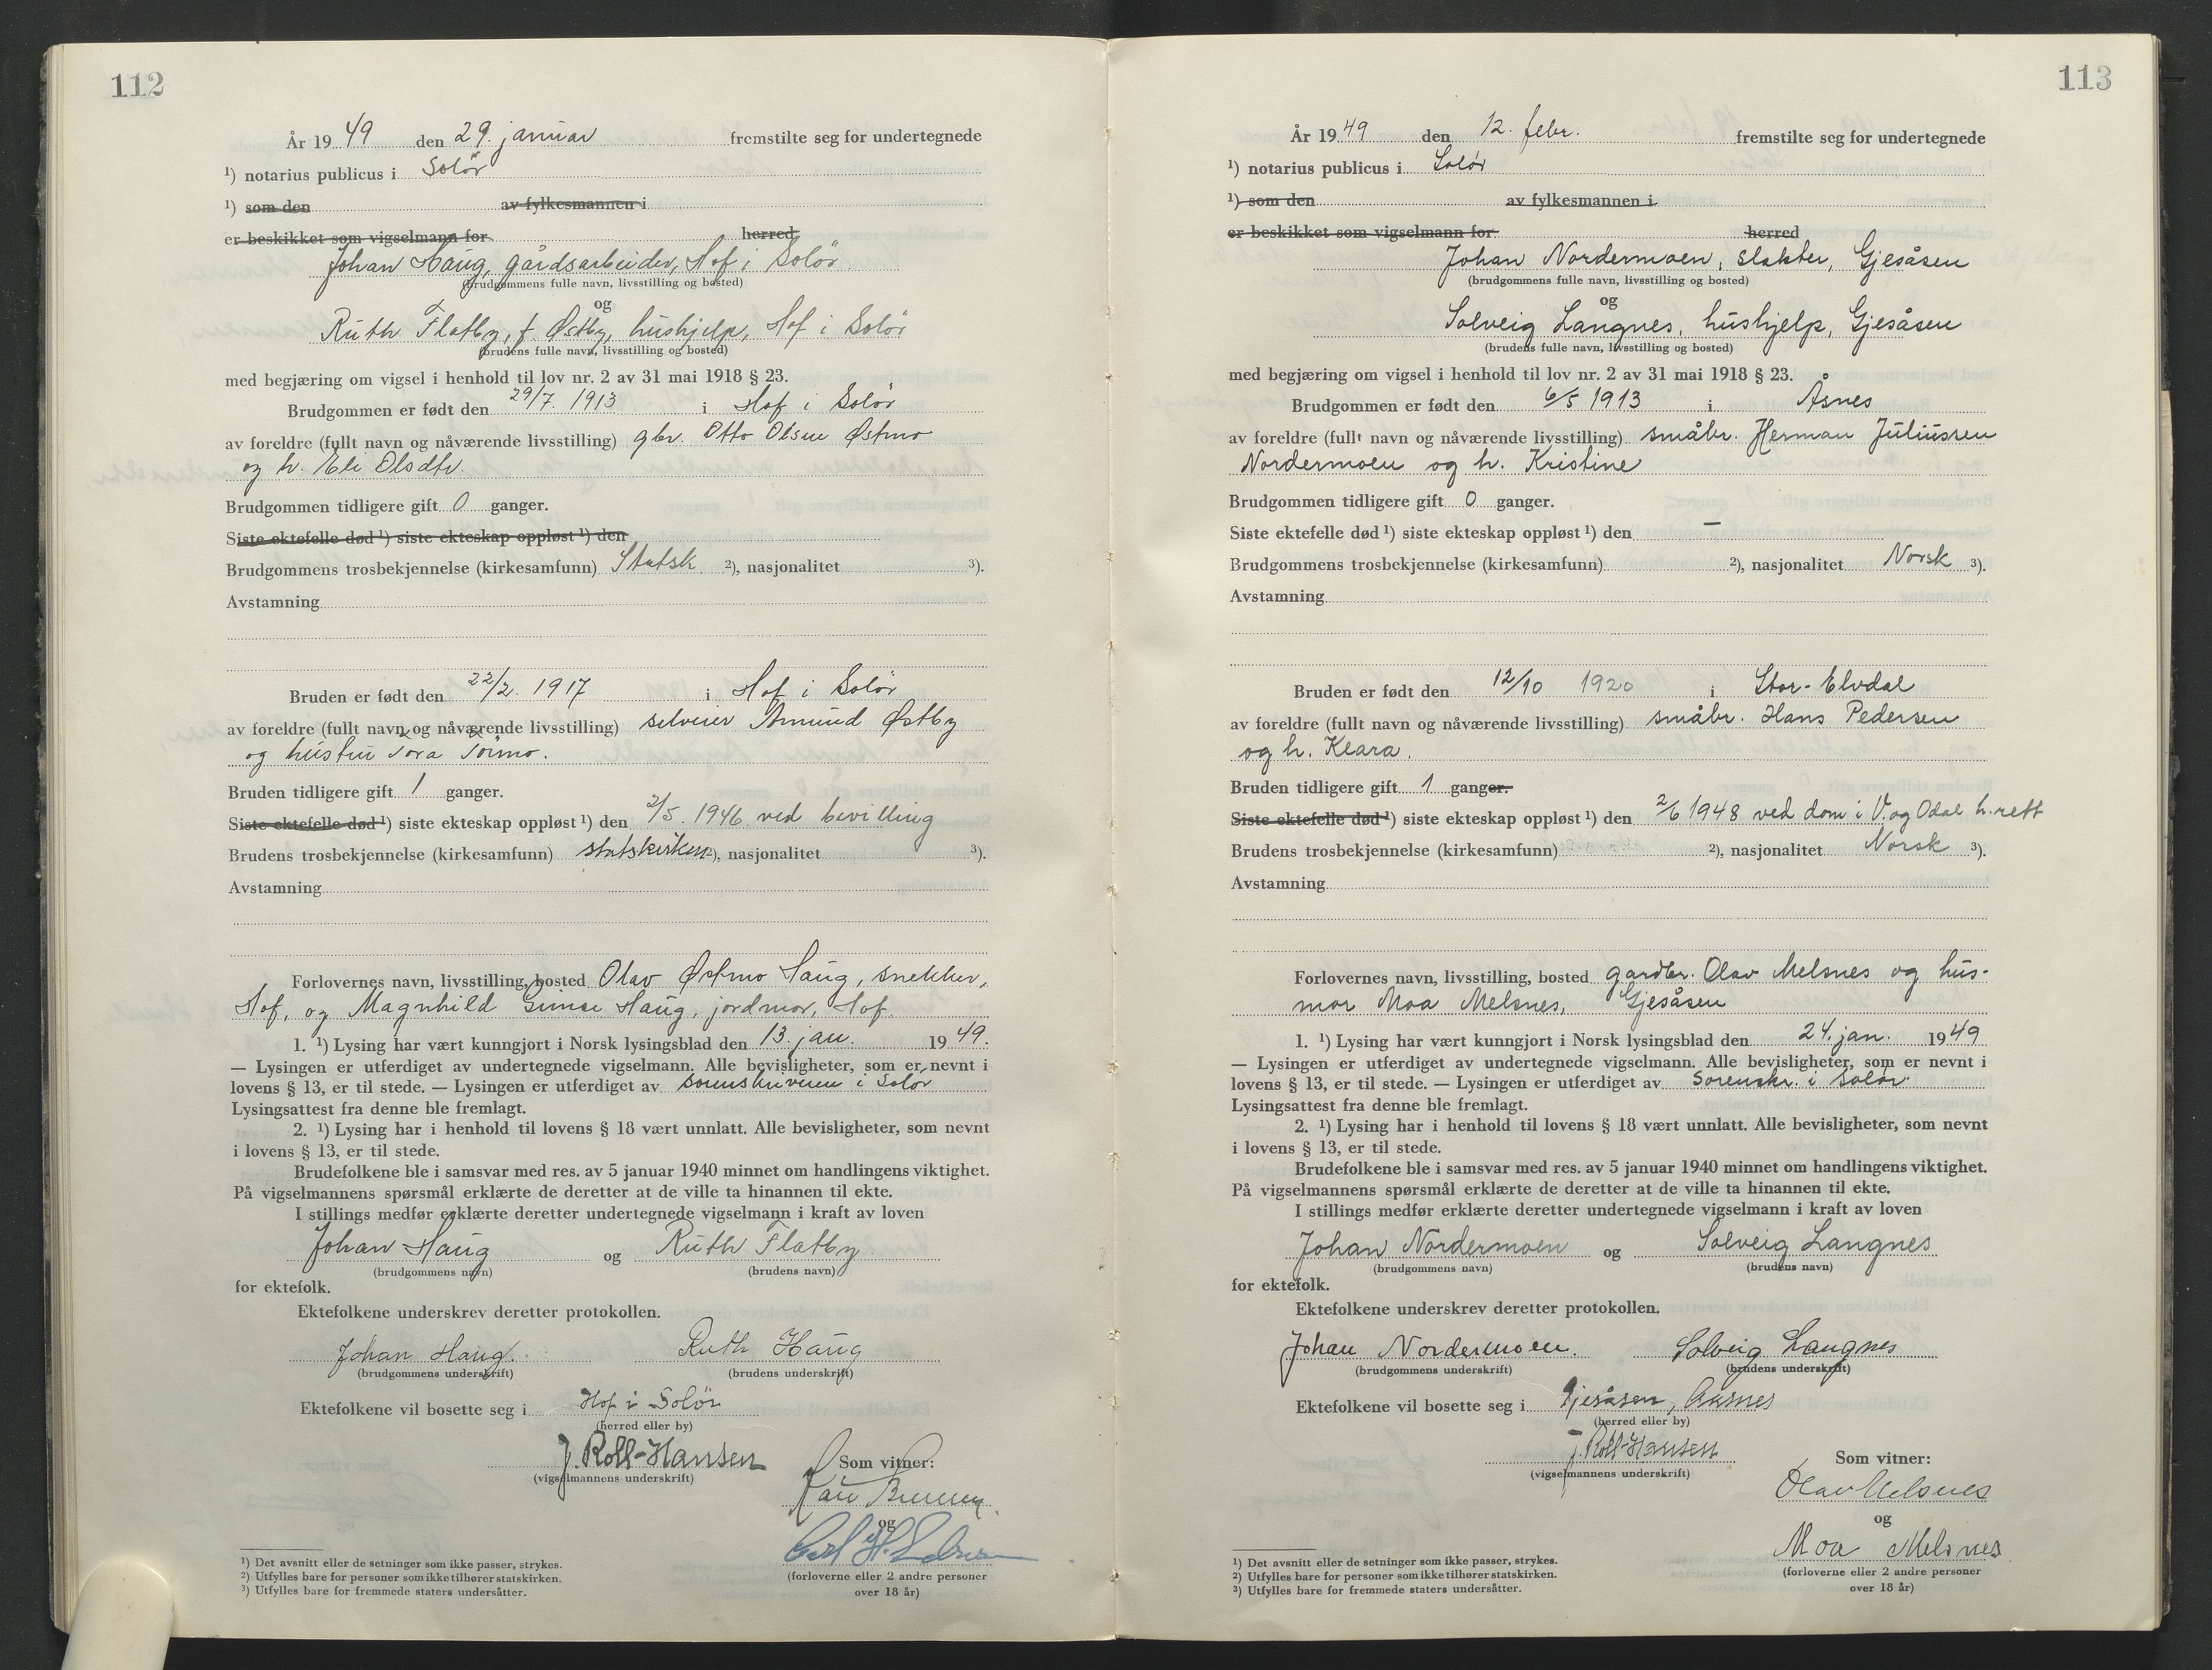 112
År 19 49 den 29 januar fremstilte seg for undertegnede
¹) notarius publicus i Solör
¹) som den av fylkesmannen i
er beskikket som vigselmann for herred
Johan Haug, gårdsarbeider, Hof i Solör
(brudgommens fulle navn, livsstilling og bosted)
og
Ruth Flatby, f. Østby, hushjelp, Hof i Solör
(brudens fulle navn, livsstilling og bosted)
med begjæring om vigsel i henhold til lov nr. 2 av 31 mai 1918 § 23.
Brudgommen er født den 29/7. 1913 i Hof i Solör
av foreldre (fullt navn og nåværende livsstilling) gbr. Otto Olsen Østmo
og h. Eli Olsdtr.
Brudgommen tidligere gift 0 ganger.
Siste ektefelle død ¹) siste ekteskap oppløst ¹) den
Brudgommens trosbekjennelse (kirkesamfunn) Statsk. ²), nasjonalitet ³).
Avstamning
Bruden er født den 22/2. 1917 i Hof i Solör
av foreldre (fullt navn og nåværende livsstilling) selveier Amund Østby
og hustru Tora Törmo.
Bruden tidligere gift 1 ganger.
Siste ektefelle død ¹) siste ekteskap oppløst ¹) den 2/5. 1946 ved bevilling
Brudens trosbekjennelse (kirkesamfunn) statskirken ²), nasjonalitet ³).
Avstamning
Forlovernes navn, livsstilling, bosted Olav Østmo Haug, snekker,
Hof, og Magnhild Haug, jordmor, Hof.
1. ¹) Lysing har vært kunngjort i Norsk lysingsblad den 13. jan. 19 49.
— Lysingen er utferdiget av undertegnede vigselmann. Alle bevisligheter, som er nevnt i
lovens § 13, er til stede. — Lysingen er utferdiget av sorenskriveren i Solör
Lysingsattest fra denne ble fremlagt.
2. ¹) Lysing har i henhold til lovens § 18 vært unnlatt. Alle bevisligheter, som nevnt
i lovens § 13, er til stede.
Brudefolkene ble i samsvar med res. av 5 januar 1940 minnet om handlingens viktighet.
På vigselmannens spørsmål erklærte de deretter at de ville ta hinannen til ekte.
I stillings medfør erklærte deretter undertegnede vigselmann i kraft av loven
Johan Haug og Ruth Flatby
(brudgommens navn) (brudens navn)
for ektefolk.
Ektefolkene underskrev deretter protokollen.
Johan Haug. Ruth Haug
(brudgommens underskrift) (brudens underskrift)
Ektefolkene vil bosette seg i Hof i Solör
(herred eller by)
J. Roll-Hansen Som vitner:
(vigselmannens underskrift)
og
(forloverne eller 2 andre personer
over 18 år)
¹) Det avsnitt eller de setninger som ikke passer, strykes.
²) Utfylles bare for personer som ikke tilhører statskirken.
³) Utfylles bare for fremmede staters undersåtter.
113
År 19 49 den 12. febr. fremstilte seg for undertegnede
¹) notarius publicus i Solör
¹) som den av fylkesmannen i
er beskikket som vigselmann for herred
Johan Nordermoen, slakter, Gjesåsen
(brudgommens fulle navn, livsstilling og bosted)
og
Solveig Langnes, hushjelp, Gjesåsen
(brudens fulle navn, livsstilling og bosted)
med begjæring om vigsel i henhold til lov nr. 2 av 31 mai 1918 § 23.
Brudgommen er født den 6/5 1913 i Åsnes
av foreldre (fullt navn og nåværende livsstilling) småbr. Herman Juliussen
Nordermoen og h. Kristine
Brudgommen tidligere gift 0 ganger.
Siste ektefelle død ¹) siste ekteskap oppløst ¹) den —
Brudgommens trosbekjennelse (kirkesamfunn) ²), nasjonalitet Norsk ³).
Avstamning
Bruden er født den 12/10 1920 i Stor-Elvdal
av foreldre (fullt navn og nåværende livsstilling) småbr. Hans Pedersen
og h. Klara.
Bruden tidligere gift 1 ganger.
Siste ektefelle død ¹) siste ekteskap oppløst ¹) den 2/6 1948 ved dom i V. og Odal h.rett
Brudens trosbekjennelse (kirkesamfunn) ²), nasjonalitet Norsk ³).
Avstamning
Forlovernes navn, livsstilling, bosted gardbr. Olav Melsnes og hus-
mor Moa Melsnes, Gjesåsen
1. ¹) Lysing har vært kunngjort i Norsk lysingsblad den 24. jan. 19 49
— Lysingen er utferdiget av undertegnede vigselmann. Alle bevisligheter, som er nevnt i
lovens § 13, er til stede. — Lysingen er utferdiget av Sorenskr. i Solör.
Lysingsattest fra denne ble fremlagt.
2. ¹) Lysing har i henhold til lovens § 18 vært unnlatt. Alle bevisligheter, som nevnt
i lovens § 13, er til stede.
Brudefolkene ble i samsvar med res. av 5 januar 1940 minnet om handlingens viktighet.
På vigselmannens spørsmål erklærte de deretter at de ville ta hinannen til ekte.
I stillings medfør erklærte deretter undertegnede vigselmann i kraft av loven
Johan Nordermoen og Solveig Langnes
(brudgommens navn) (brudens navn)
for ektefolk.
Ektefolkene underskrev deretter protokollen.
Johan Nordermoen. Solveig Langnes
(brudgommens underskrift) (brudens underskrift)
Ektefolkene vil bosette seg i Gjesåsen, Aasnes
(herred eller by)
J. Roll-Hansen Som vitner:
(vigselmannens underskrift)
Olav Melsnes
og
Moa Melsnes
(forloverne eller 2 andre personer
over 18 år)
¹) Det avsnitt eller de setninger som ikke passer, strykes.
²) Utfylles bare for personer som ikke tilhører statskirken.
³) Utfylles bare for fremmede staters undersåtter.